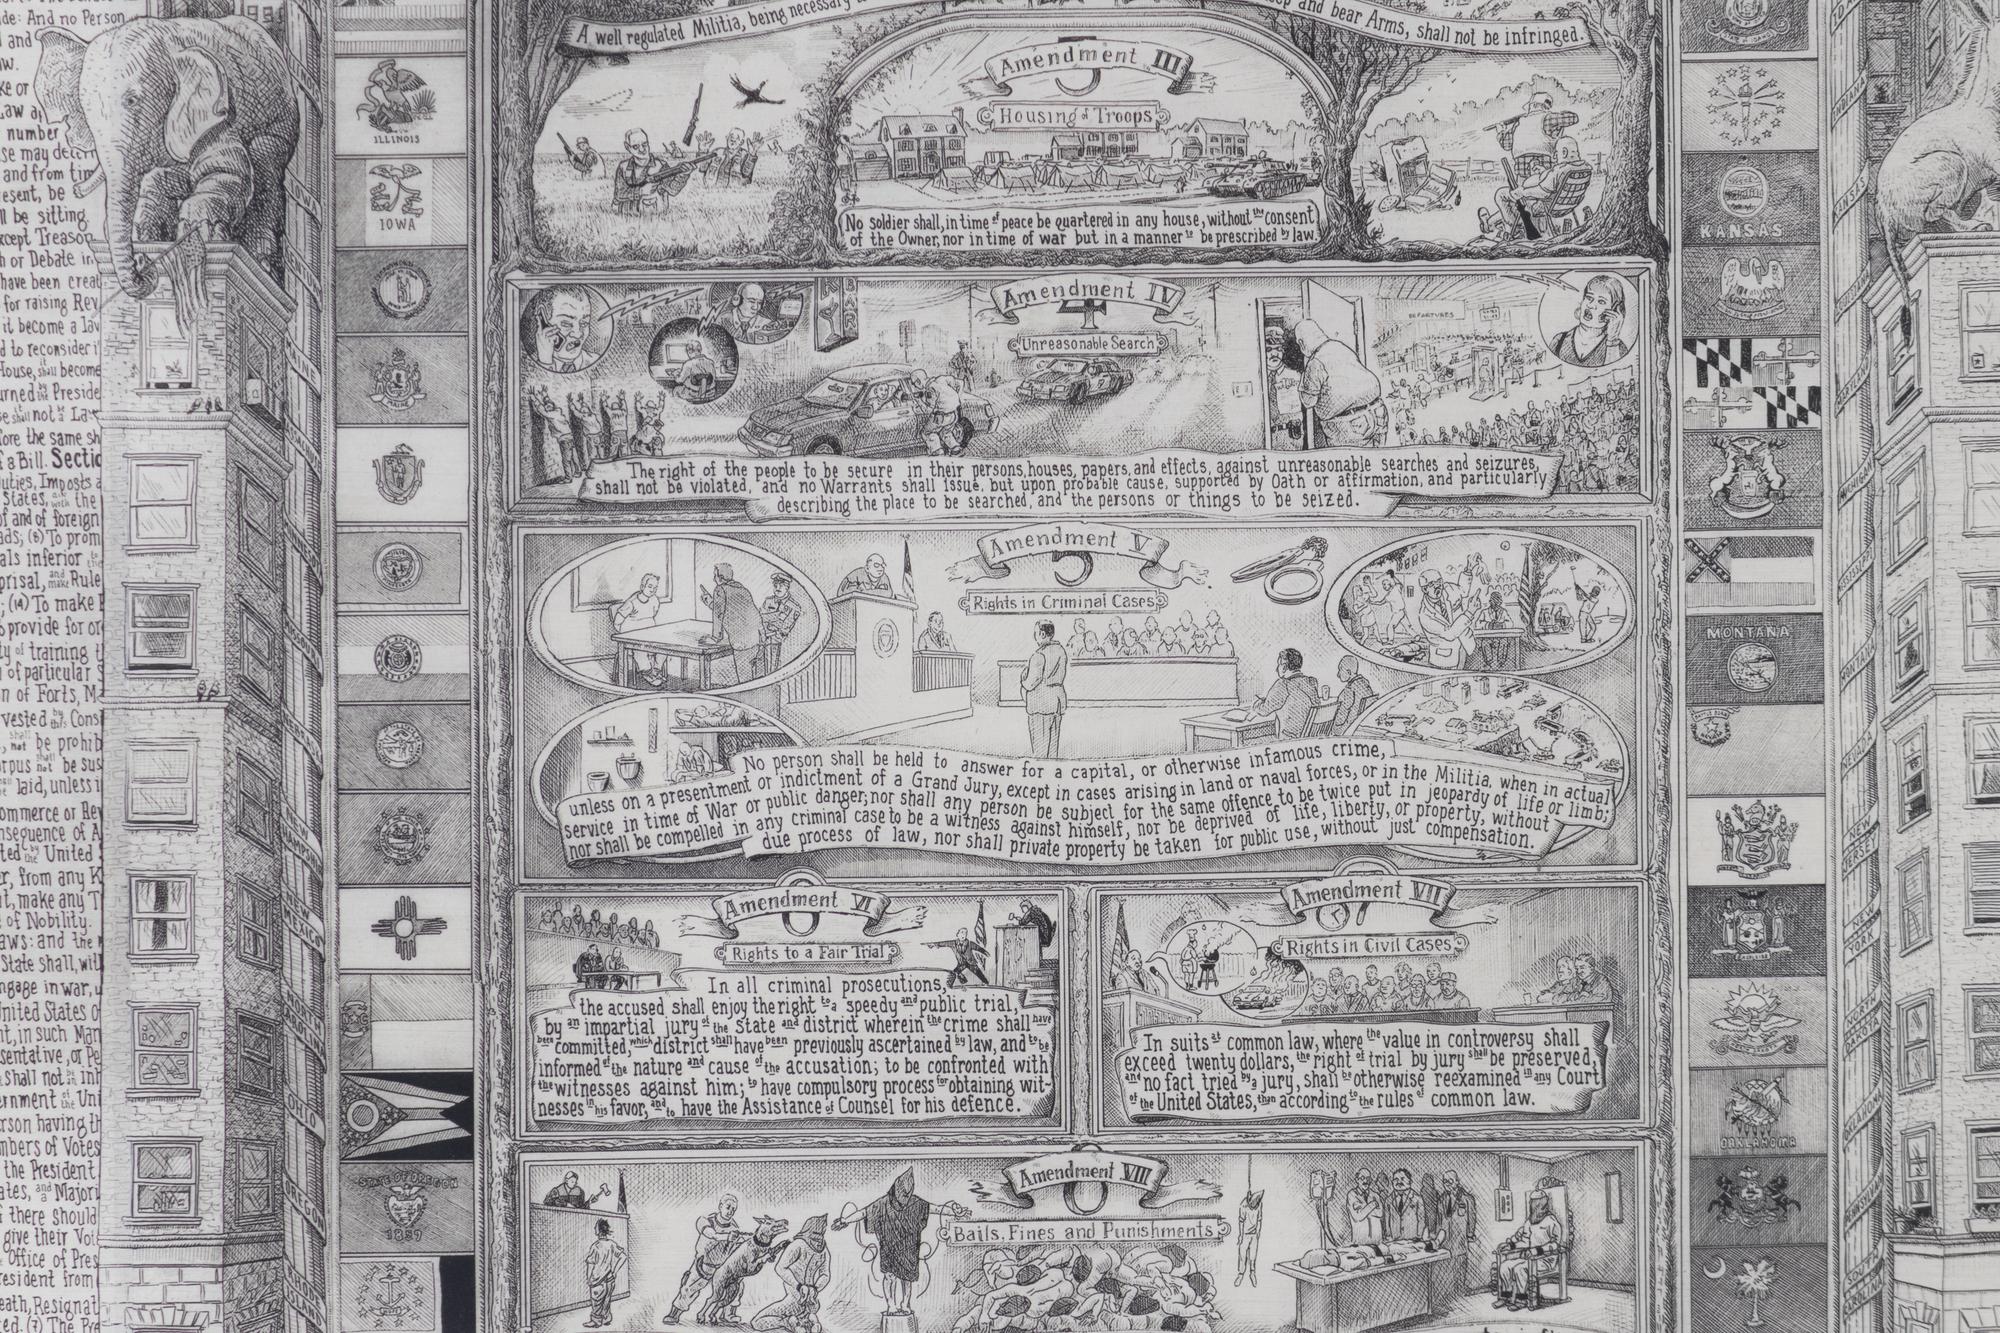 A well regulated Militia, being necessary
and bear Arms, shall not be infringed.
Amendment III
3
Housing of Troops
No soldier shall, in time of peace be quartered in any house, without the consent
of the Owner, nor in time of war but in a manner to be prescribed by law.
Amendment IV
4
Unreasonable Search
BAR
DEPARTURES
The right of the people to be secure in their persons, houses, papers, and effects, against unreasonable searches and seizures,
shall not be violated, and no Warrants shall issue, but upon probable cause, supported by Oath or affirmation, and particularly
describing the place to be searched, and the persons or things to be seized.
Amendment V
5
Rights in Criminal Cases
No person shall be held to answer for a capital, or otherwise infamous crime,
unless on a presentment or indictment of a Grand Jury, except in cases arising in land or naval forces, or in the Militia, when in actual
service in time of War or public danger; nor shall any person be subject for the same offence to be twice put in jeopardy of life or limb;
nor shall be compelled in any criminal case to be a witness against himself, nor be deprived of life, liberty, or property, without
due process of law, nor shall private property be taken for public use, without just compensation.
Amendment VI
6
Rights to a Fair Trial
In all criminal prosecutions,
the accused shall enjoy the right to a speedy and public trial,
by an impartial jury of the State and district wherein the crime shall have
been committed, which district shall have been previously ascertained by law, and to be
informed of the nature and cause of the accusation; to be confronted with
the witnesses against him; to have compulsory process for obtaining wit-
nesses in his favor, and to have the Assistance of Counsel for his defence.
Amendment VII
7
Rights in Civil Cases
In suits at common law, where the value in controversy shall
exceed twenty dollars, the right of trial by jury shall be preserved,
and no fact tried by a jury, shall be otherwise reexamined in any Court
of the United States, than according to the rules of common law.
Amendment VIII
8
Bails, Fines and Punishments
ILLINOIS
IOWA
MAINE
STATE OF OREGON
1859
KANSAS
MONTANA
OKLAHOMA
IOWA
MAINE
MISSOURI
NEW HAMPSHIRE
NEW MEXICO
NORTH CAROLINA
OHIO
OREGON
RHODE ISLAND
INDIANA
KANSAS
MARYLAND
MICHIGAN
MISSISSIPPI
MONTANA
NEVADA
NEW JERSEY
NEW YORK
NORTH DAKOTA
OKLAHOMA
PENNSYLVANIA
SOUTH CAROLINA
And no Person
and
number
and from
be
be sitting
Treason
or Debate
have been
for raising
it become a
to reconsider
House, shall become
not be a
the same
a Bill. Section
Imposts
States, with the
and of foreign
To
inferior
and make Rule
(14) To make
provide for
of training
of particular
of Forts,
vested by
shall not be
be
laid, unless
Commerce or
of
by the United
from any
make any
of Nobility.
and the
State shall,
engage in war,
United States
in such
or
shall not be
of the
having
of Votes
the President
and a
there should
give their
Office of
from
Death,
(7) The